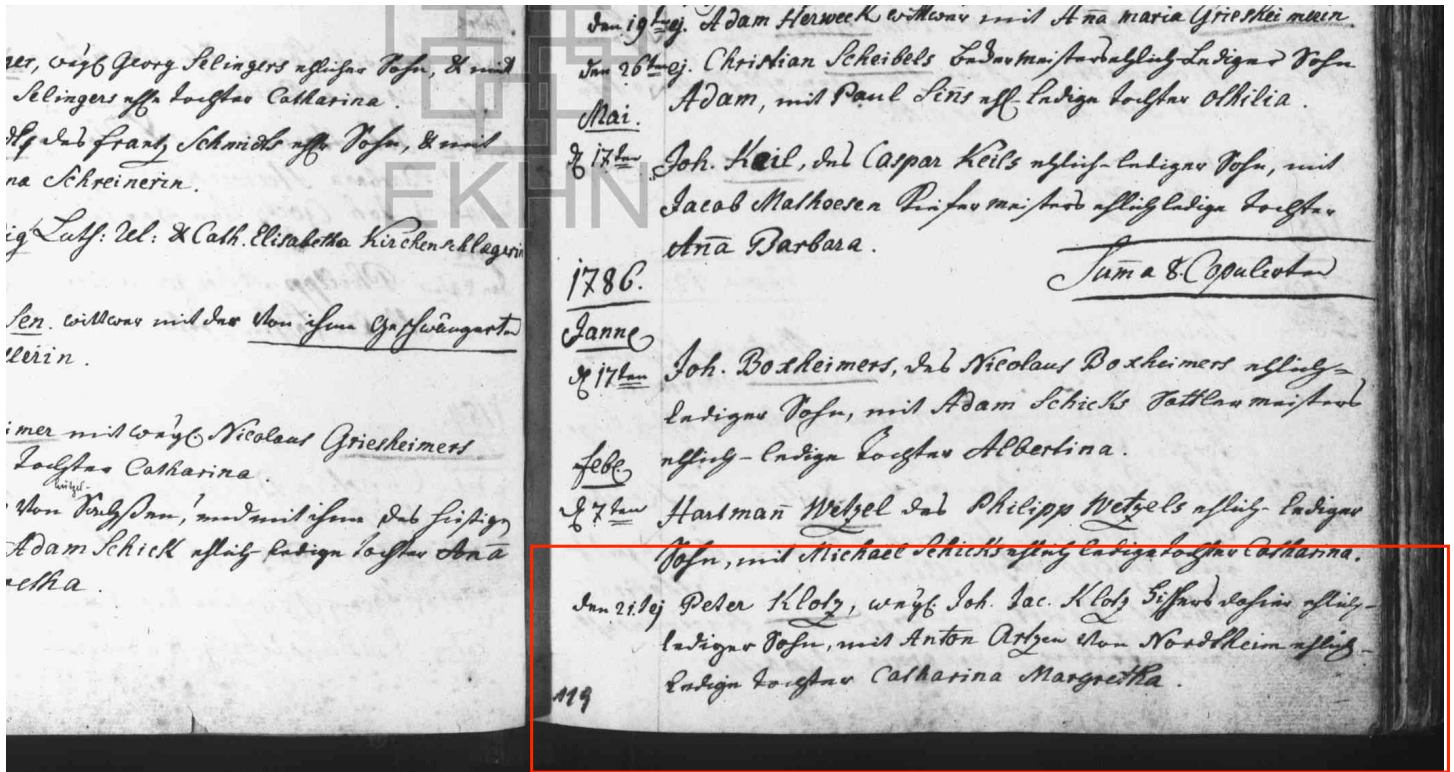 ner, weyl Georg Selingers ehlicher Sohn, & mit
Selingers ehle Tochter Catharina.
des frantz Schmidts ehle Sohn, & mit
na Schreinerin.
ig Luth: & Cath. Elisabetha Kirchenschlagerin
Sen. wittwer mit der von ihm geschwängerten
llerin.
imer mit weyl Nicolaus Griesheimers
Tochter Catharina.
von Sachßen, und mit ihm des hiesigen
Adam Schick ehlich ledige Tochter Anna
retha.
EKHN
den 19ten ej. Adam Herweck wittwer mit Anna maria Griesheimerin
den 26ten ej. Christian Scheibels Bedermeisters ehlich lediger Sohn
Adam, mit Paul Sinns ehl. ledige Tochter Othilia.
Mai.
d 17ten Joh. Keil, des Caspar Keils ehlich lediger Sohn, mit
Jacob Mathoesen Kiefermeisters ehlich ledige Tochter
Anna Barbara.
Summa 8. Copulirten
1786.
Janner
d 17ten Joh. Boxheimers, des Nicolaus Boxheimers ehlich-
lediger Sohn, mit Adam Schicks Sattlermeisters
ehlich-ledige Tochter Albertina.
febr.
d 7ten Hartmann Wetzel des Philipp Wetzels ehlich-lediger
Sohn, mit Michael Schicks ehlich ledige Tochter Catharina.
den 21. ej Peter Klotz, weyl. Joh. Jac. Klotz dahier ehlich-
lediger Sohn, mit Anton Artzen von Nordtheim ehlich-
ledige Tochter Catharina Margretha.
119